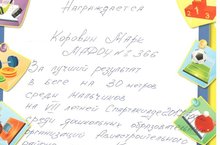 Награждается
Коровин Марк
МАДОУ № 366
За лучший результат
в беге на 30 метров
среди мальчиков
на VIII летней Спартакиаде
среди дошкольных образоват
организаций Машиностроительного
района